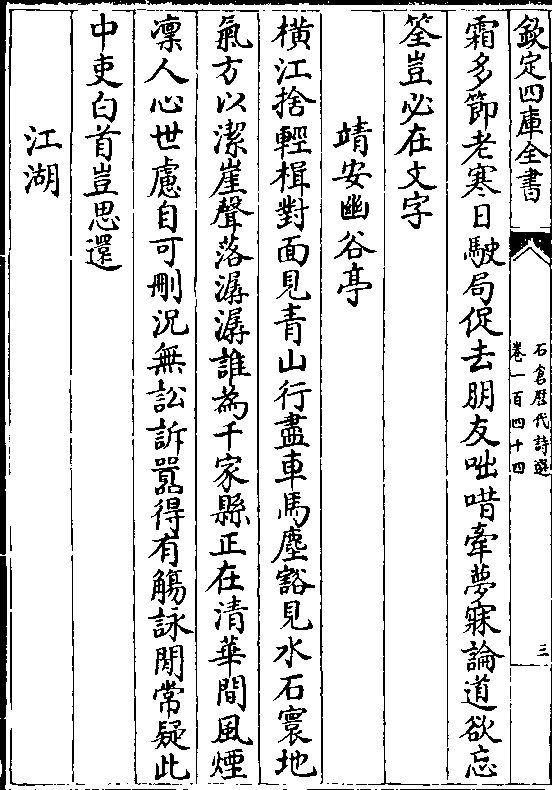 欽定四庫全書
石倉歴代詩選
卷一百四十四
三
霜多節老寒日駛局促去朋友咄喈牽夢寐論道欲忘
筌豈必在文字
靖安幽谷亭
橫江捨輕楫對面見青山行盡車馬塵豁見水石寰地
氣方以潔崖聲落潺潺誰為千家縣正在清華間風煙
凜人心世慮自可刪況無訟訴囂得有觴詠閒常疑此
中吏白首豈思還
江湖